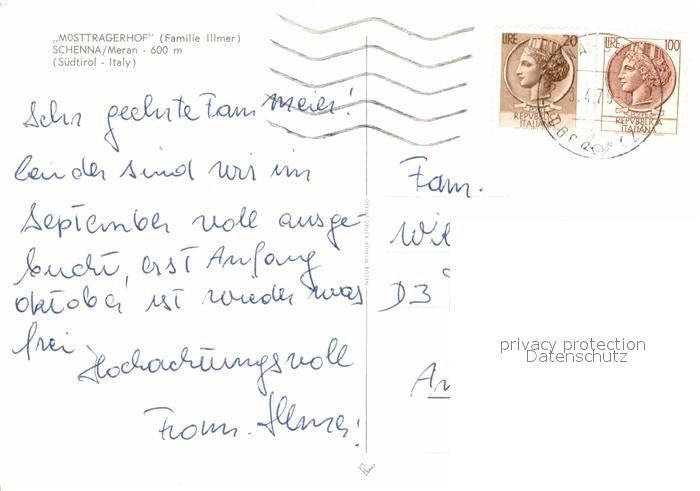 „MOSTTRAGERHOF" (Familie Illmer)
SCHENNA/Meran - 600 m
(Südtirol - Italy)
Sehr geehrte Fam Meier!
leider sind wir im
September voll ausge-
bucht, erst Anfang
Oktober ist wieder was
frei
Hochachtungsvoll
Fam. Illmer!
LIRE 20
REPVBBLICA
ITALIANA
LIRE 100
REPVBBLICA
ITALIANA
Fam.
D3
privacy protection
Datenschutz